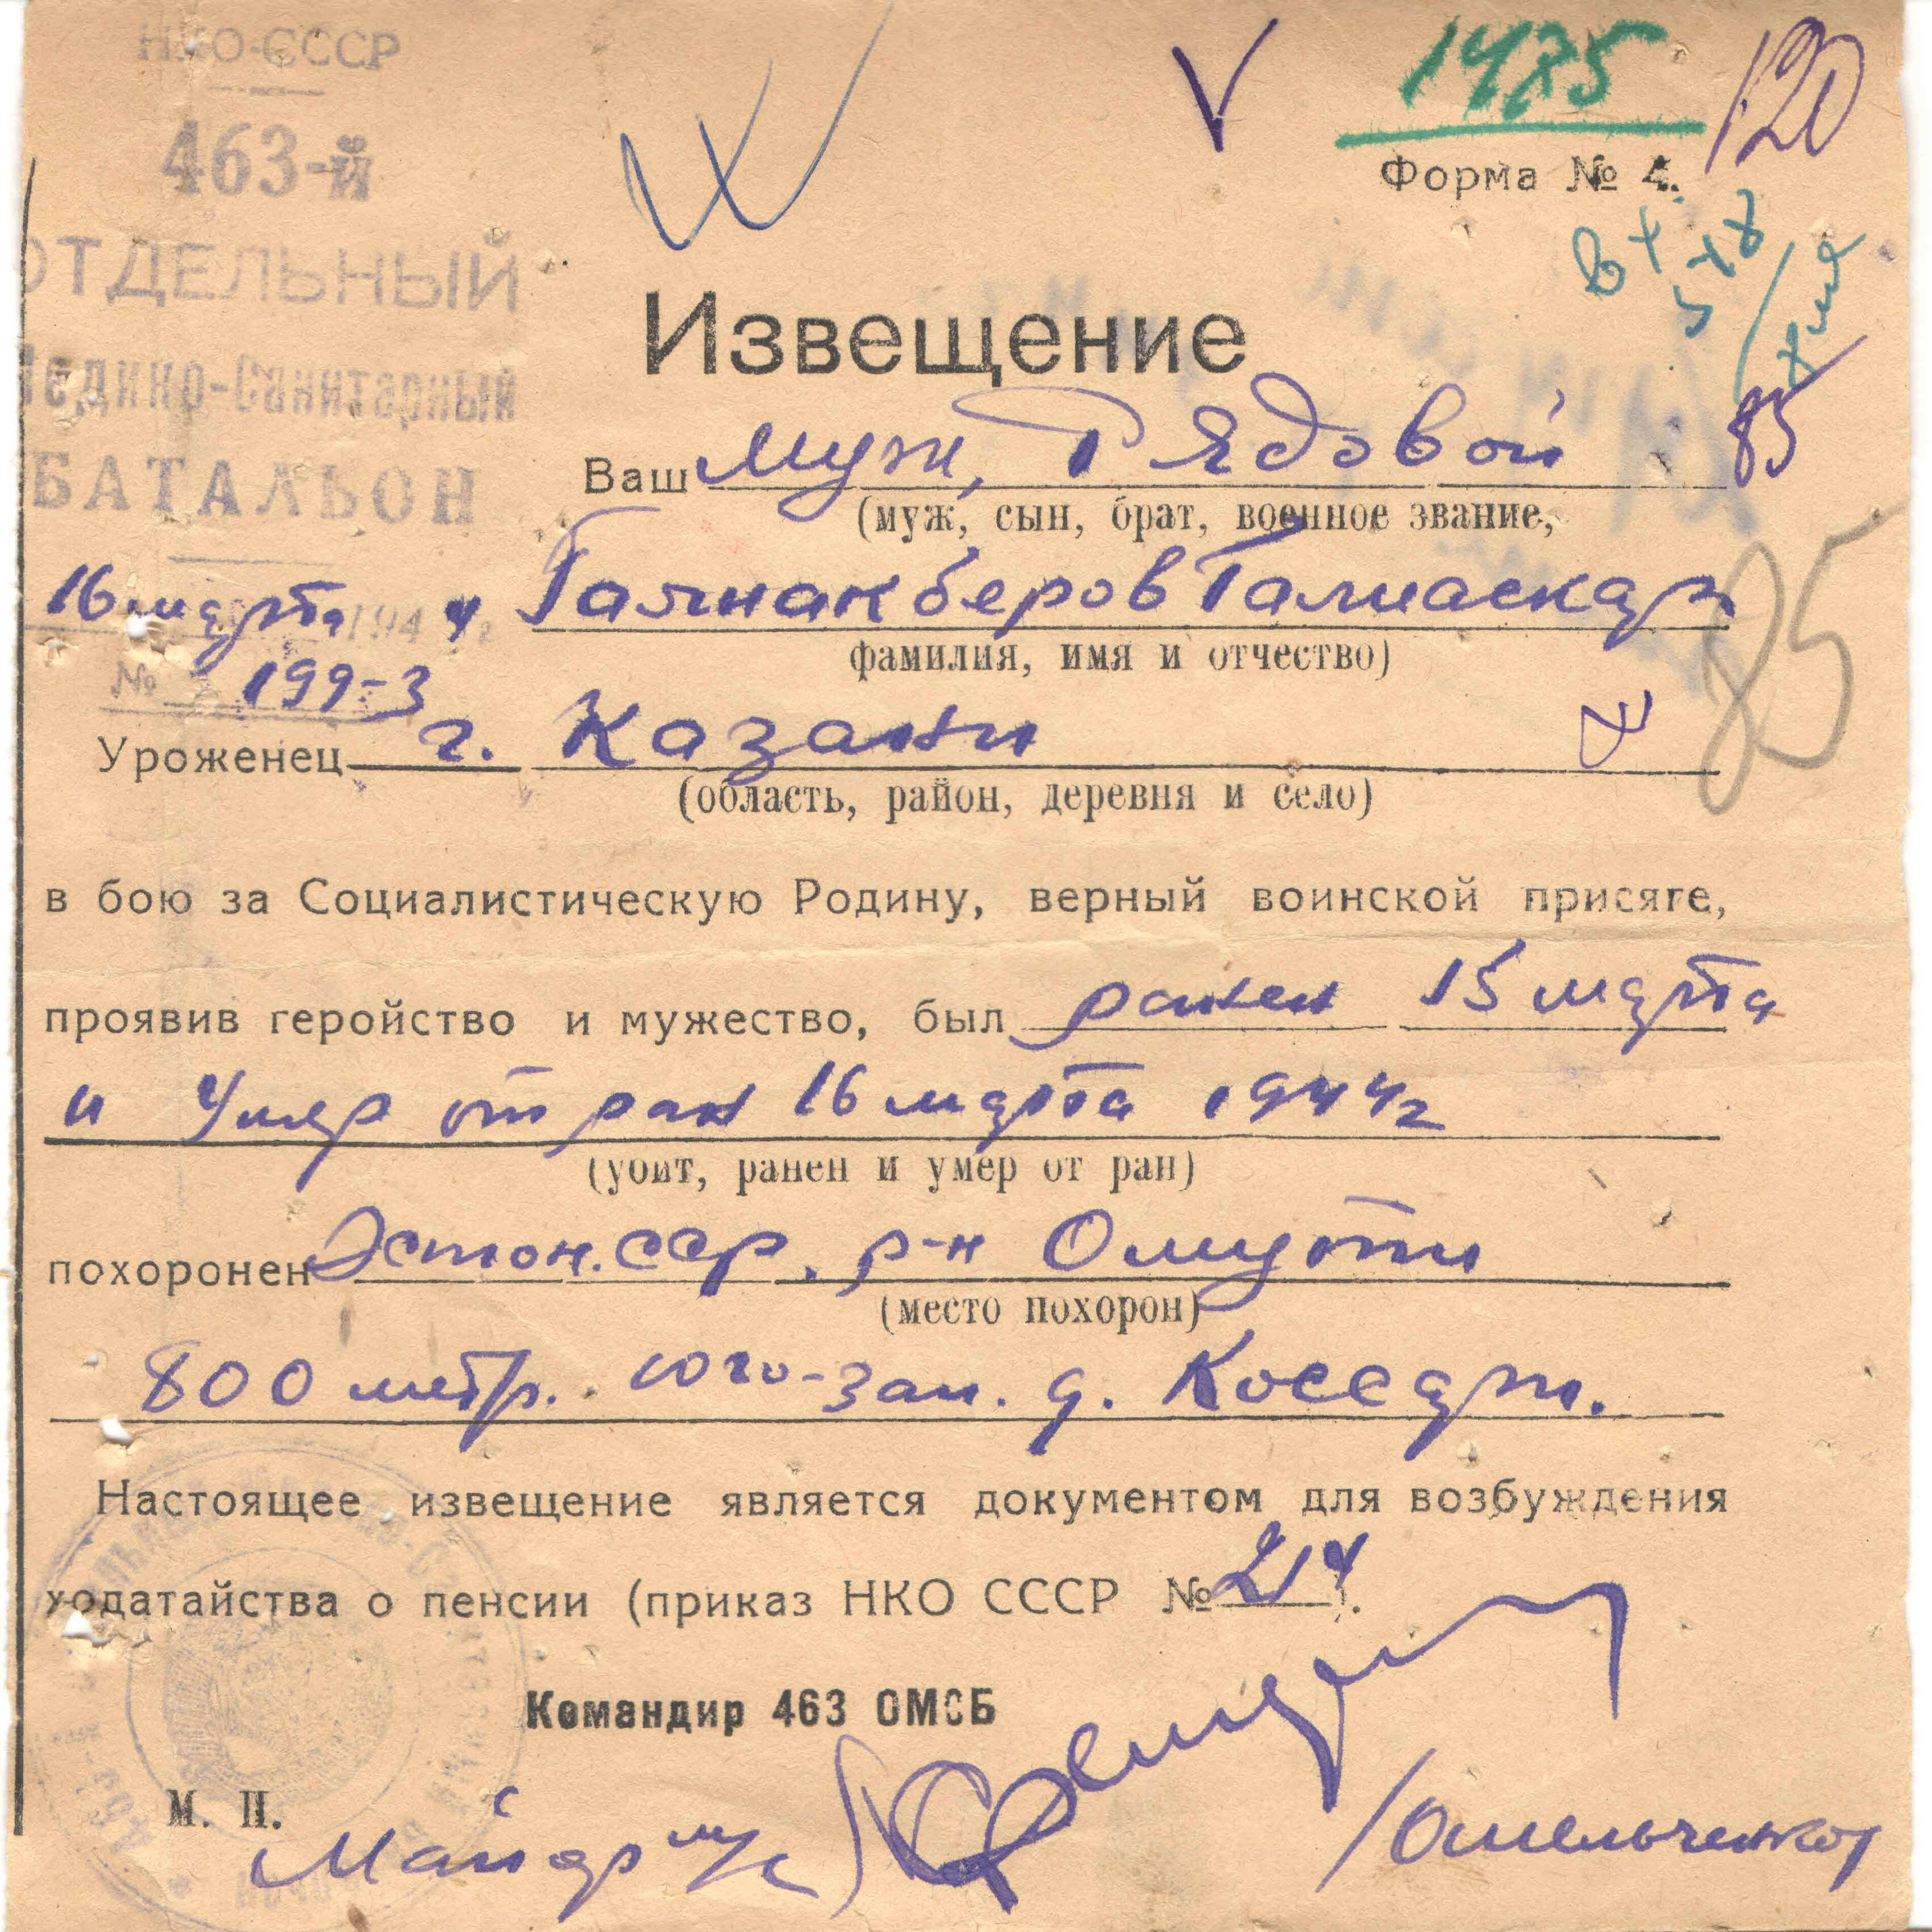 НКО-СССР
463-й
ОТДЕЛЬНЫЙ
Медико-Санитарный
БАТАЛЬОН
16 марта 1944 г.
№ 199-3
1475
120
Форма № 4.
Вх
Извещение
85
Ваш муж, Рядовой
(муж, сын, брат, военное звание,
Гаянакберов Галиаскар
фамилия, имя и отчество)
85
Уроженец г. Казани
(область, район, деревня и село)
в бою за Социалистическую Родину, верный воинской присяге,
проявив геройство и мужество, был ранен 15 марта
и Умер от ран 16 марта 1944 г
(убит, ранен и умер от ран)
похоронен Эстон. ССР. р-н Омути
(место похорон)
800 метр. юго-зап. д.
Настоящее извещение является документом для возбуждения
ходатайства о пенсии (приказ НКО СССР № 214).
Командир 463 ОМСБ
М. П.
Майор м/с
/Омельченко/